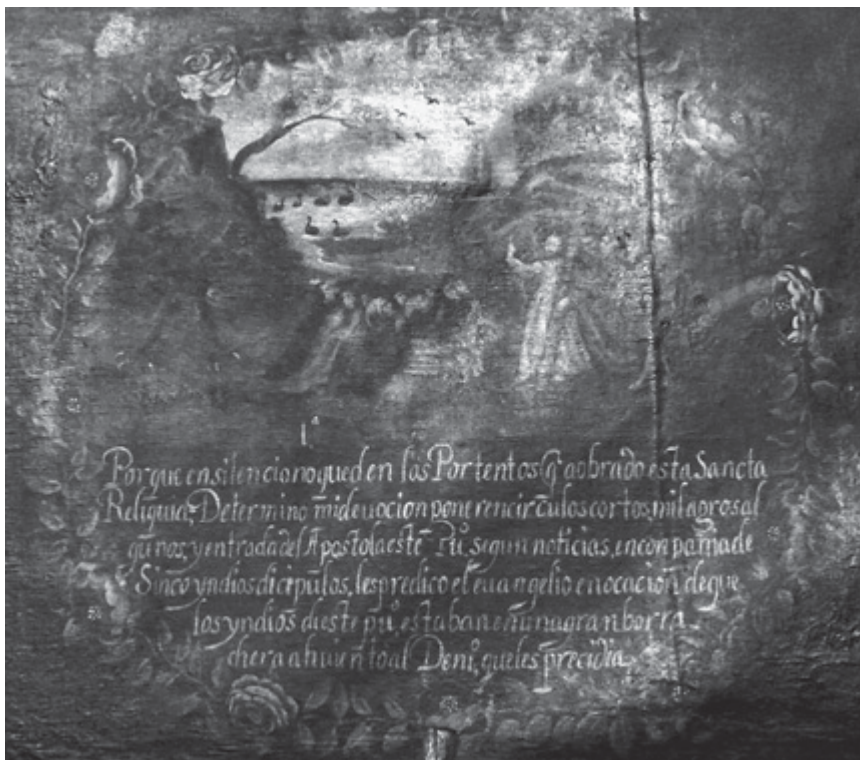 1ª
Porque en silencio no queden los Portentos q̃ a obrado esta Sancta
Reliquia; Determino mi deuocion poner en circulos cortos, milagros al
gunos, y entrada del Apostol a este Puº, segun noticias, en conpañia de
Sinco yndios dicipulos, les predico el euangelio en ocacion de que
los yndios d'este puº, estaban en una gran borra
chera ahuiento al Demº, que les precidia